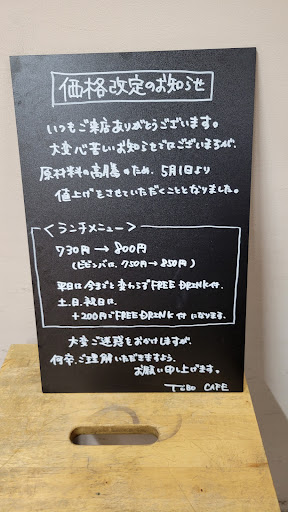 価格改定のお知らせ
いつもご来店ありがとうございます。
大変心苦しいお知らせではございますが、
原材料の高騰のため、5月1日より
値上げをさせていただくこととなりました。
<ランチメニュー>
730円→800円
(ビビンバは、750円→850円)
平日は今までと変わらずFREE DRINK付、
土、日、祝日は、
+200円でFREE DRINK付になります。
大変ご迷惑をおかけしますが、
何卒、ご理解いただきますよう、
お願い申し上げます。
CAFE